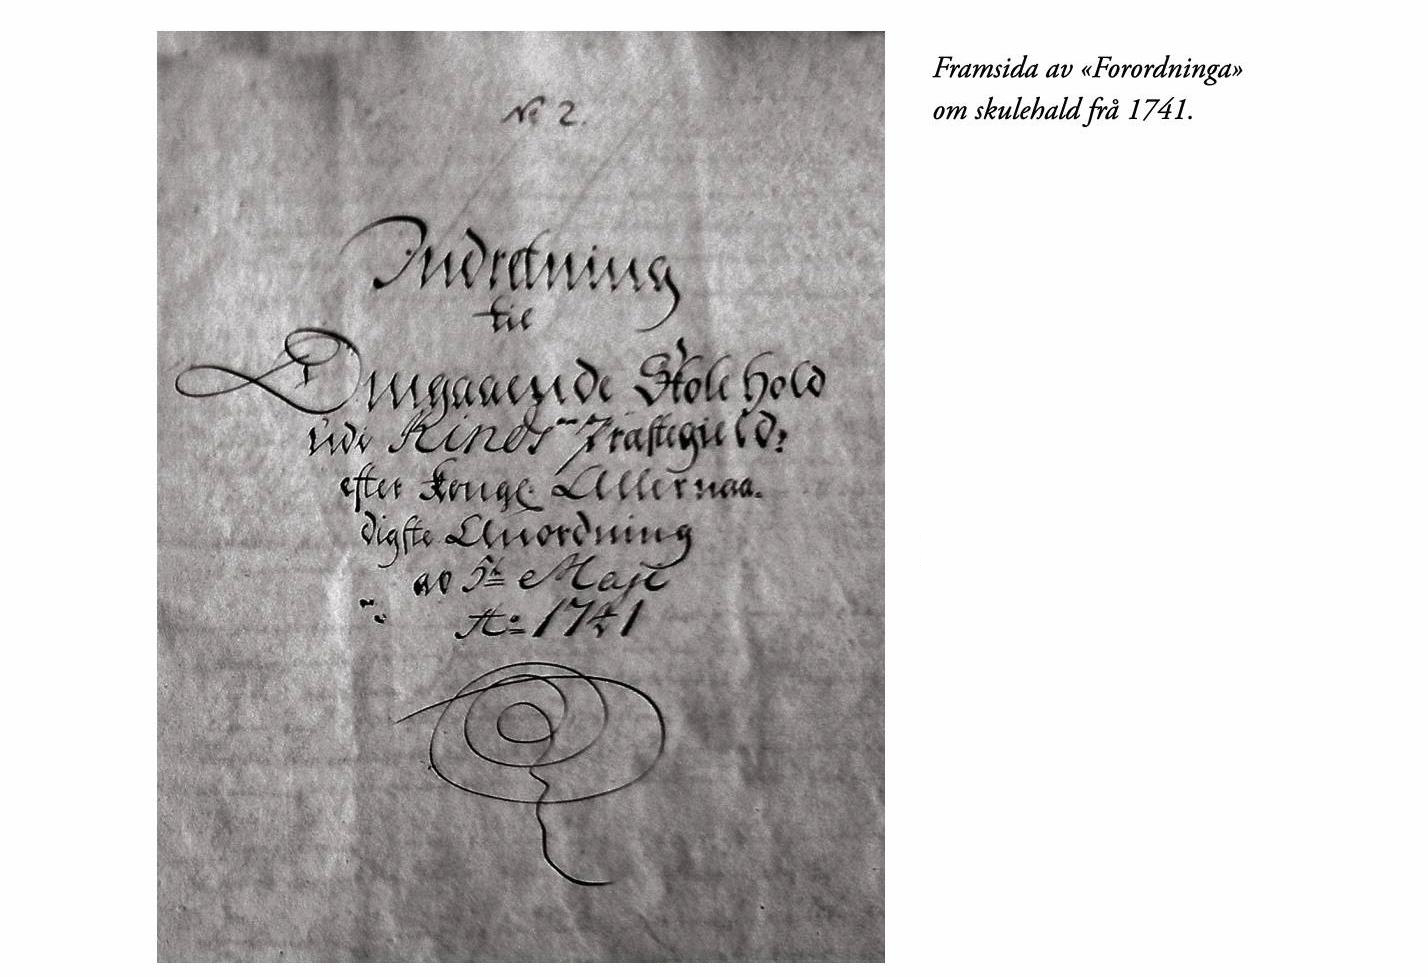 No 2.
Indretning
til
Omgaaende Skole Hold
udi Kinds Præstegield;
efter Konge. Allernaa-
digste Anordning
av 5te Maji
Ao 1741
Framsida av «Forordninga»
om skulehald frå 1741.